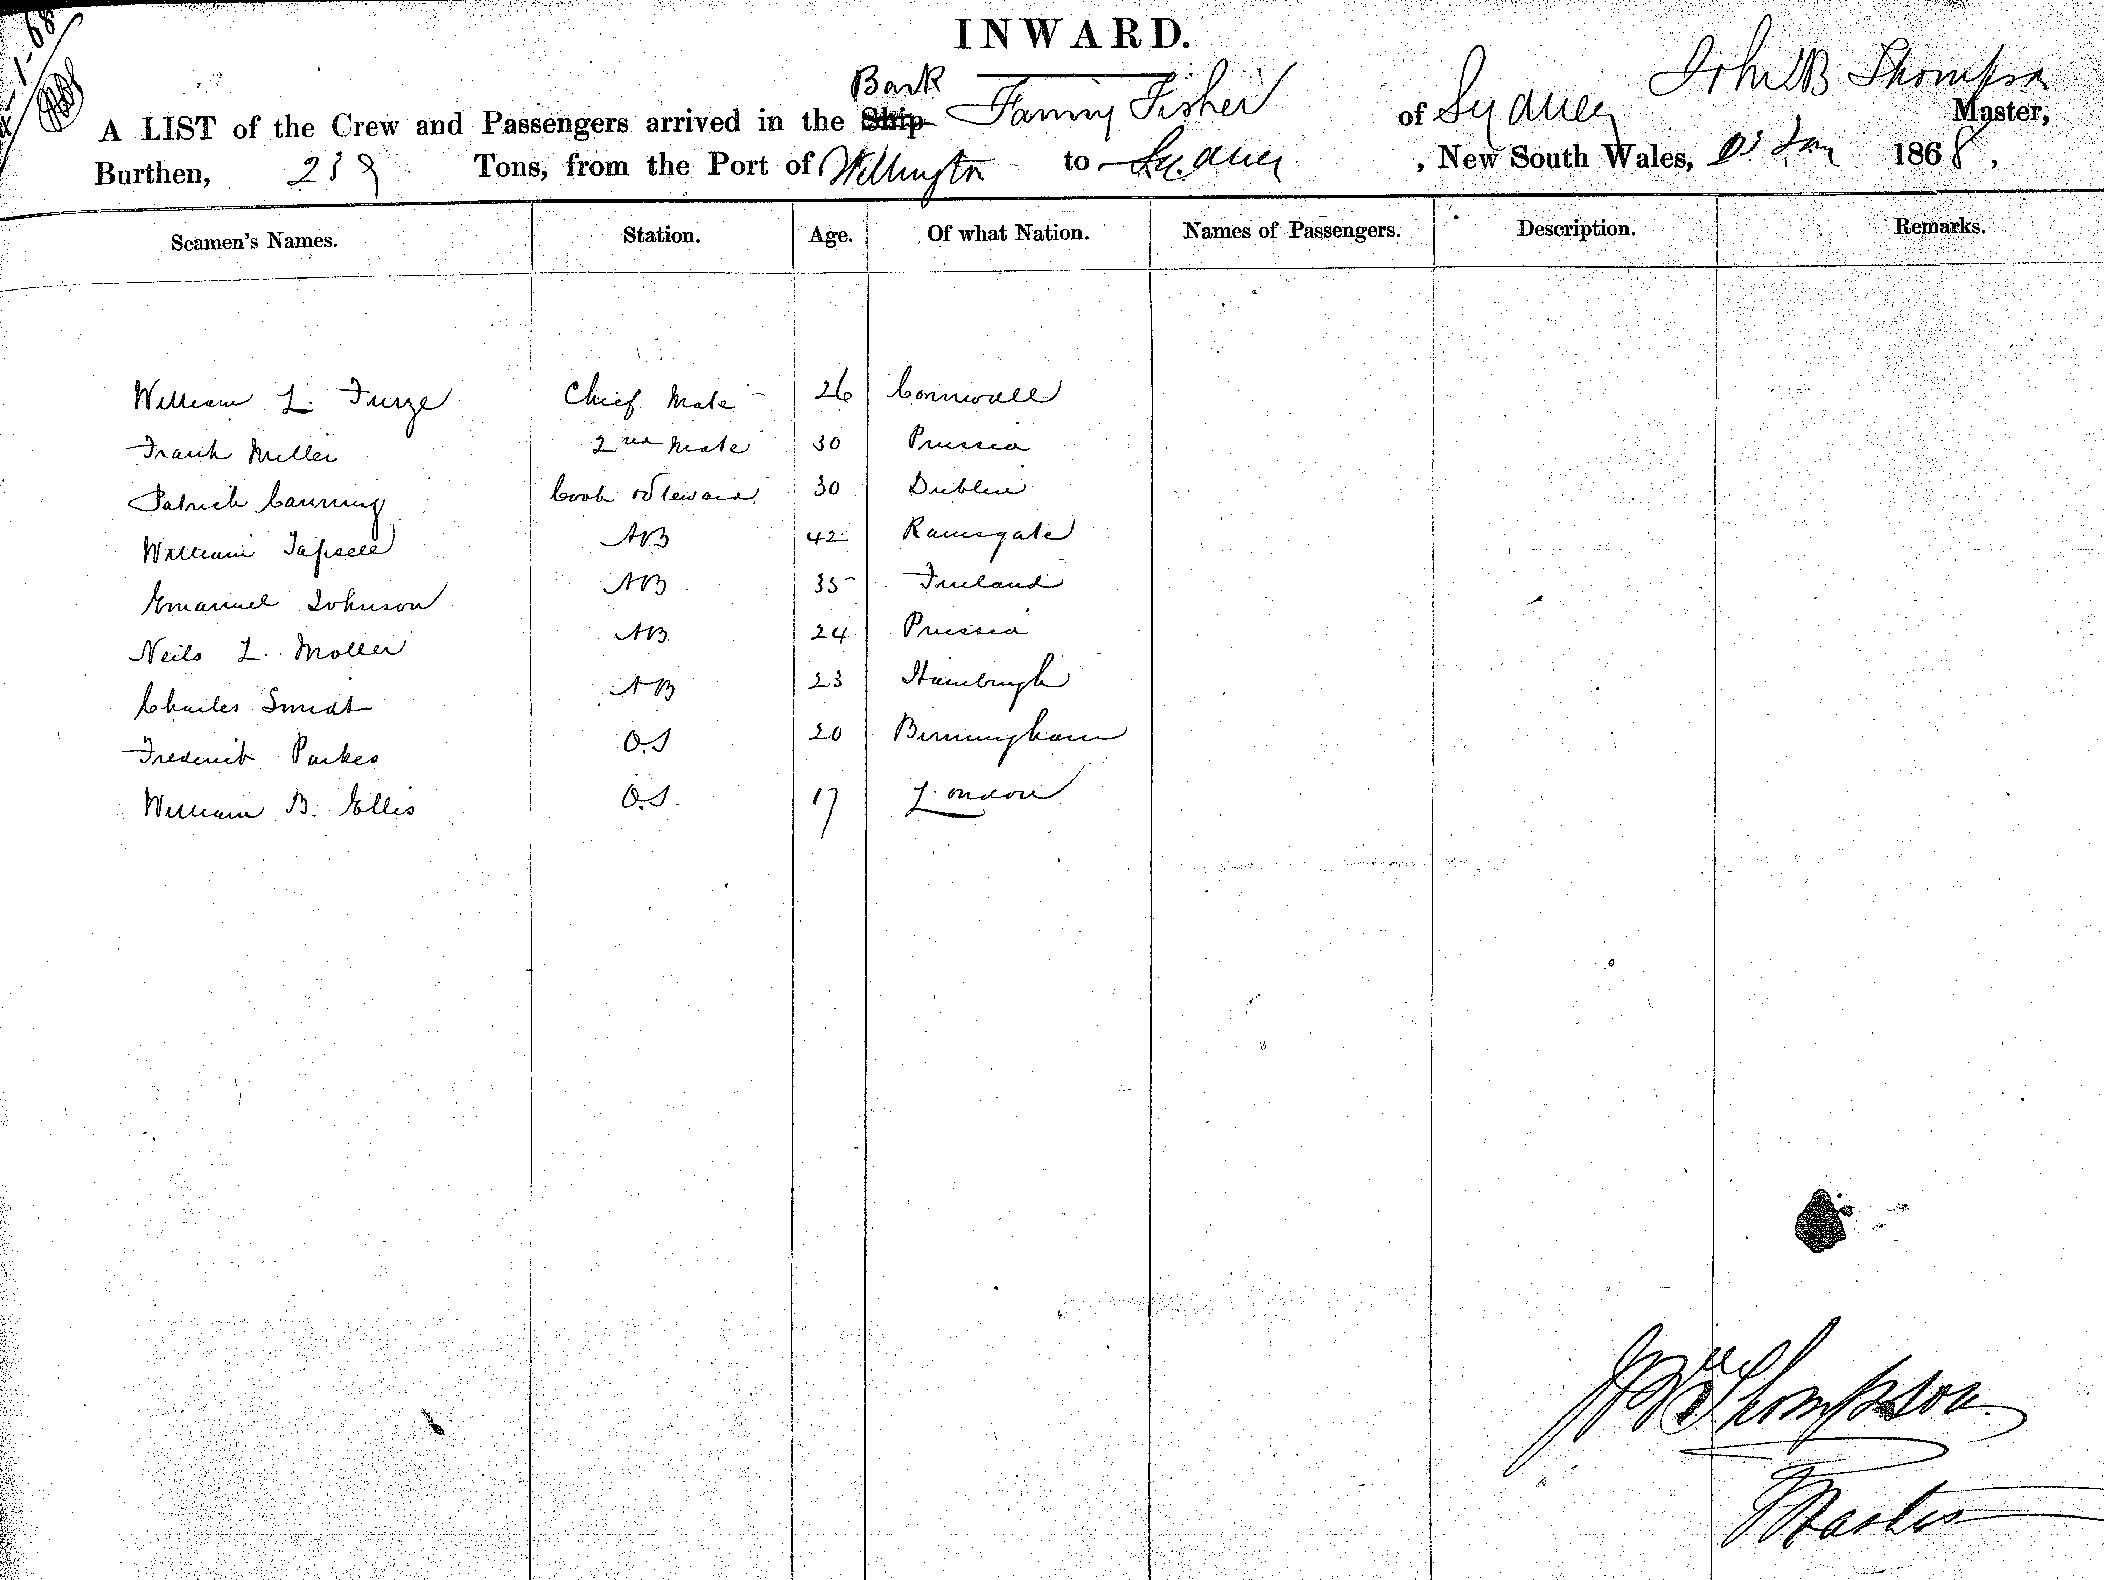 INWARD.
A LIST of the Crew and Passengers arrived in the Ship Bark Fanny Fisher of Sydney John B Thompson Master,
Burthen, 239 Tons, from the Port of Wellington to Sydney, New South Wales, Jan 1868.
Seamen's Names. Station. Age. Of what Nation. Names of Passengers. Description. Remarks.
William L. Furze Chief Mate 26 Cornwall
Frank Miller 2nd Mate 30 Prussia
Patrick Canning Cook & Steward 30 Dublin
William Tapsell AB 42 Ramsgate
Emanuel Johnson AB 35 Finland
Neils L. Moller AB 24 Prussia
Charles Smidt AB 23 Hamburgh
Frederick Parkes O.S 20 Birmingham
William B. Ellis O.S. 17 London
JB Thompson
Master